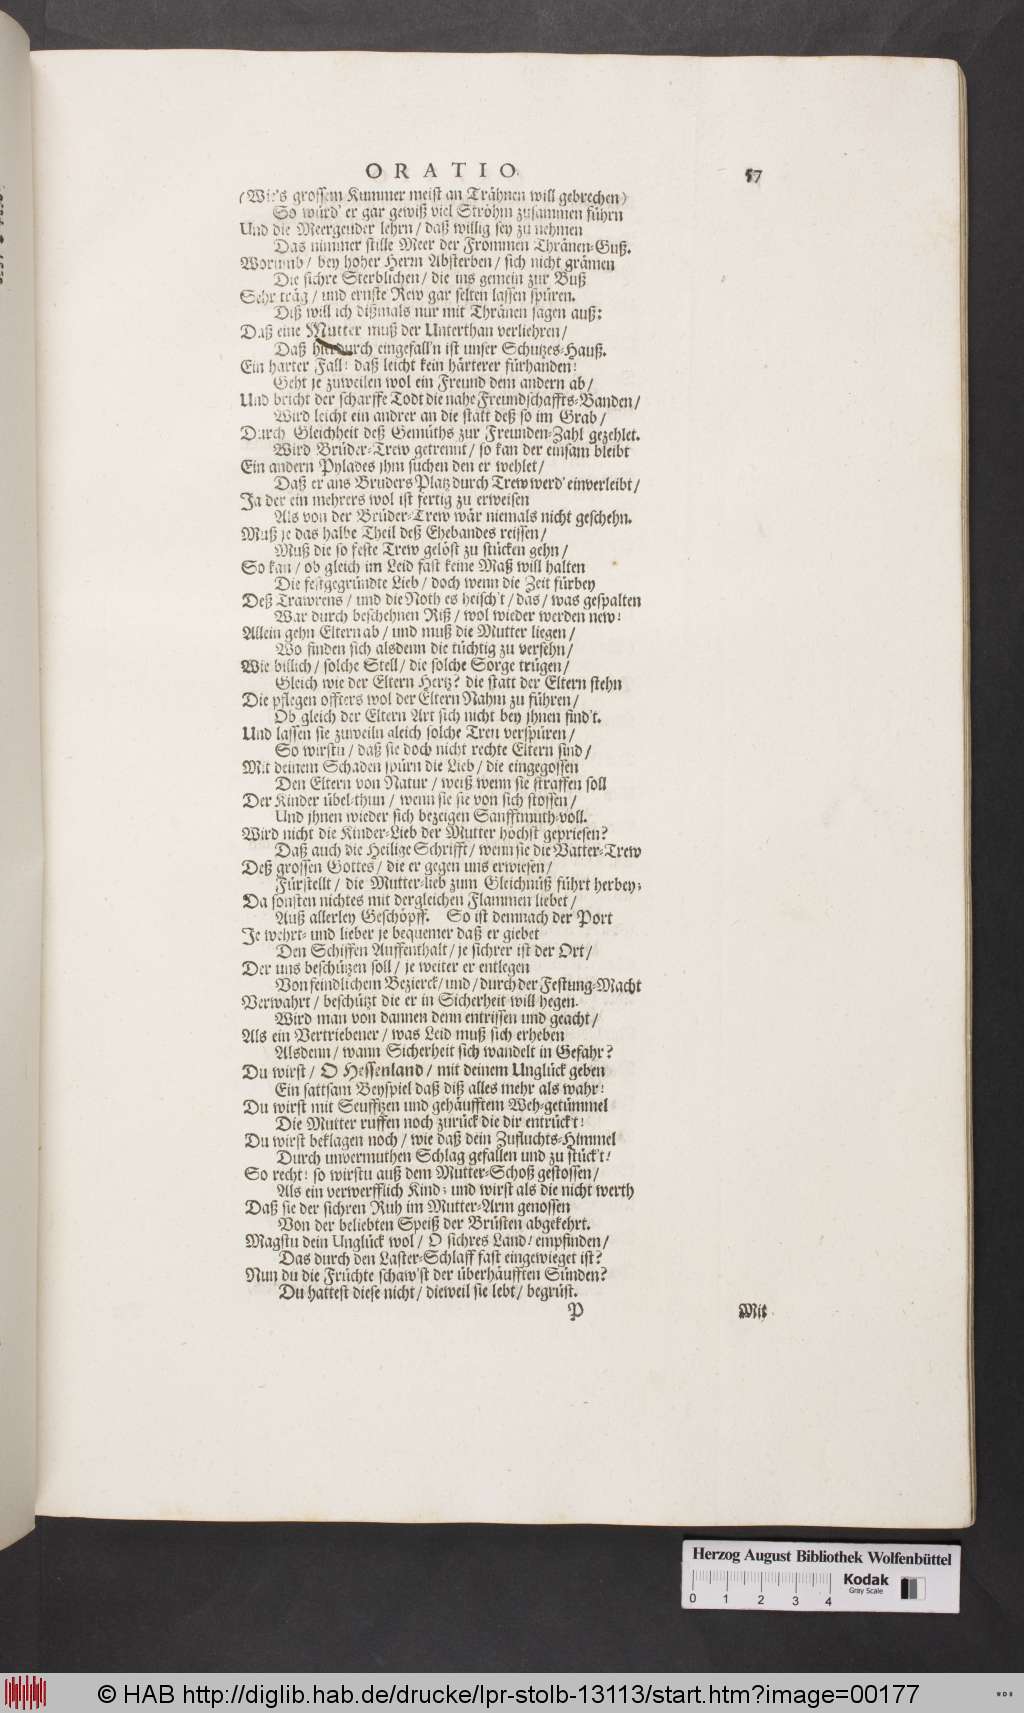 ORATIO. 57
(Wie's grossem Kummer meist an Trähnen will gebrechen)
So würd' er gar gewiß viel Ströhm zusammen führn
Und die Meergender lehrn / daß willig sey zu nehmen
Das nimmer stille Meer der Frommen Thränen-Guß.
Worumb / bey hoher Herrn Absterben / sich nicht grämen
Die sichre Sterblichen / die ins gemein zur Buß
Sehr träg / und ernste Rew gar selten lassen spüren.
Diß will ich dißmals nur mit Thränen sagen auß:
Daß eine Mutter muß der Unterthan verliehren /
Daß hierdurch eingefall'n ist unser Schutzes-Hauß.
Ein harter Fall! daß leicht kein härterer fürhanden!
Geht je zuweilen wol ein Freund dem andern ab /
Und bricht der scharffe Todt die nahe Freundschaffts-Banden /
Wird leicht ein andrer an die statt deß so im Grab /
Durch Gleichheit deß Gemüths zur Freunden-Zahl gezehlet.
Wird Brüder-Trew getrennt / so kan der einsam bleibt
Ein andern Pylades jhm suchen den er wehlet /
Daß er ans Bruders Platz durch Trew werd' einverleibt /
Ja der ein mehrers wol ist fertig zu erweisen
Als von der Brüder-Trew wär niemals nicht geschehn.
Muß je das halbe Theil deß Ehebandes reissen /
Muß die so feste Trew gelöst zu stücken gehn /
So kan / ob gleich im Leid fast keine Maß will halten
Die festgegründte Lieb / doch wenn die Zeit fürbey
Deß Trawrens / und die Noth es heisch't / das / was gespalten
War durch beschehnen Riß / wol wieder werden new!
Allein gehn Eltern ab / und muß die Mutter liegen /
Wo finden sich alsdenn die tüchtig zu versehn /
Wie billich / solche Stell / die solche Sorge trügen /
Gleich wie der Eltern Hertz? die statt der Eltern stehn
Die pflegen offters wol der Eltern Nahm zu führen /
Ob gleich der Eltern Art sich nicht bey jhnen find't.
Und lassen sie zuweiln gleich solche Treu verspüren /
So wirstu / daß sie doch nicht rechte Eltern sind /
Mit deinem Schaden spürn die Lieb / die eingegossen
Den Eltern von Natur / weiß wenn sie straffen soll
Der Kinder übel-thun / wenn sie sie von sich stossen /
Und jhnen wieder sich bezeigen Sanfftmuth-voll.
Wird nicht die Kinder-Lieb der Mutter höchst gepriesen?
Daß auch die Heilige Schrifft / wenn sie die Vatter-Trew
Deß grossen Gottes / die er gegen uns erwiesen /
Fürstellt / die Mutter-lieb zum Gleichnüß führt herbey;
Da sonsten nichtes mit dergleichen Flammen liebet /
Auß allerley Geschöpff. So ist demnach der Port
Je wehrt- und lieber je bequemer daß er giebet
Den Schiffen Auffenthalt / je sichrer ist der Ort /
Der uns beschützen soll / je weiter er entlegen
Von feindlichem Bezierck / und / durch der Festung-Macht
Verwahrt / beschützt die er in Sicherheit will hegen.
Wird man von dannen denn entrissen und geacht /
Als ein Vertriebener / was Leid muß sich erheben
Alsdenn / wann Sicherheit sich wandelt in Gefahr?
Du wirst / O Hessenland / mit deinem Unglück geben
Ein sattsam Beyspiel daß diß alles mehr als wahr!
Du wirst mit Seufftzen und gehäufftem Weh-getümmel
Die Mutter ruffen noch zurück die dir entrück't!
Du wirst beklagen noch / wie daß dein Zufluchts-Himmel
Durch unvermuthen Schlag gefallen und zu stück't!
So recht! so wirstu auß dem Mutter-Schoß gestossen /
Als ein verwerfflich Kind; und wirst als die nicht werth
Daß sie der sichren Ruh im Mutter-Arm genossen
Von der beliebten Speiß der Brüsten abgekehrt.
Magstu dein Unglück wol / O sichres Land! empfinden /
Das durch den Laster-Schlaff fast eingewieget ist?
Nun du die Früchte schaw'st der überhäufften Sünden?
Du hattest diese nicht / dieweil sie lebt / begrüst.
P Mit
Herzog August Bibliothek Wolfenbüttel
Kodak
Gray Scale
0 1 2 3 4
© HAB http://diglib.hab.de/drucke/lpr-stolb-13113/start.htm?image=00177